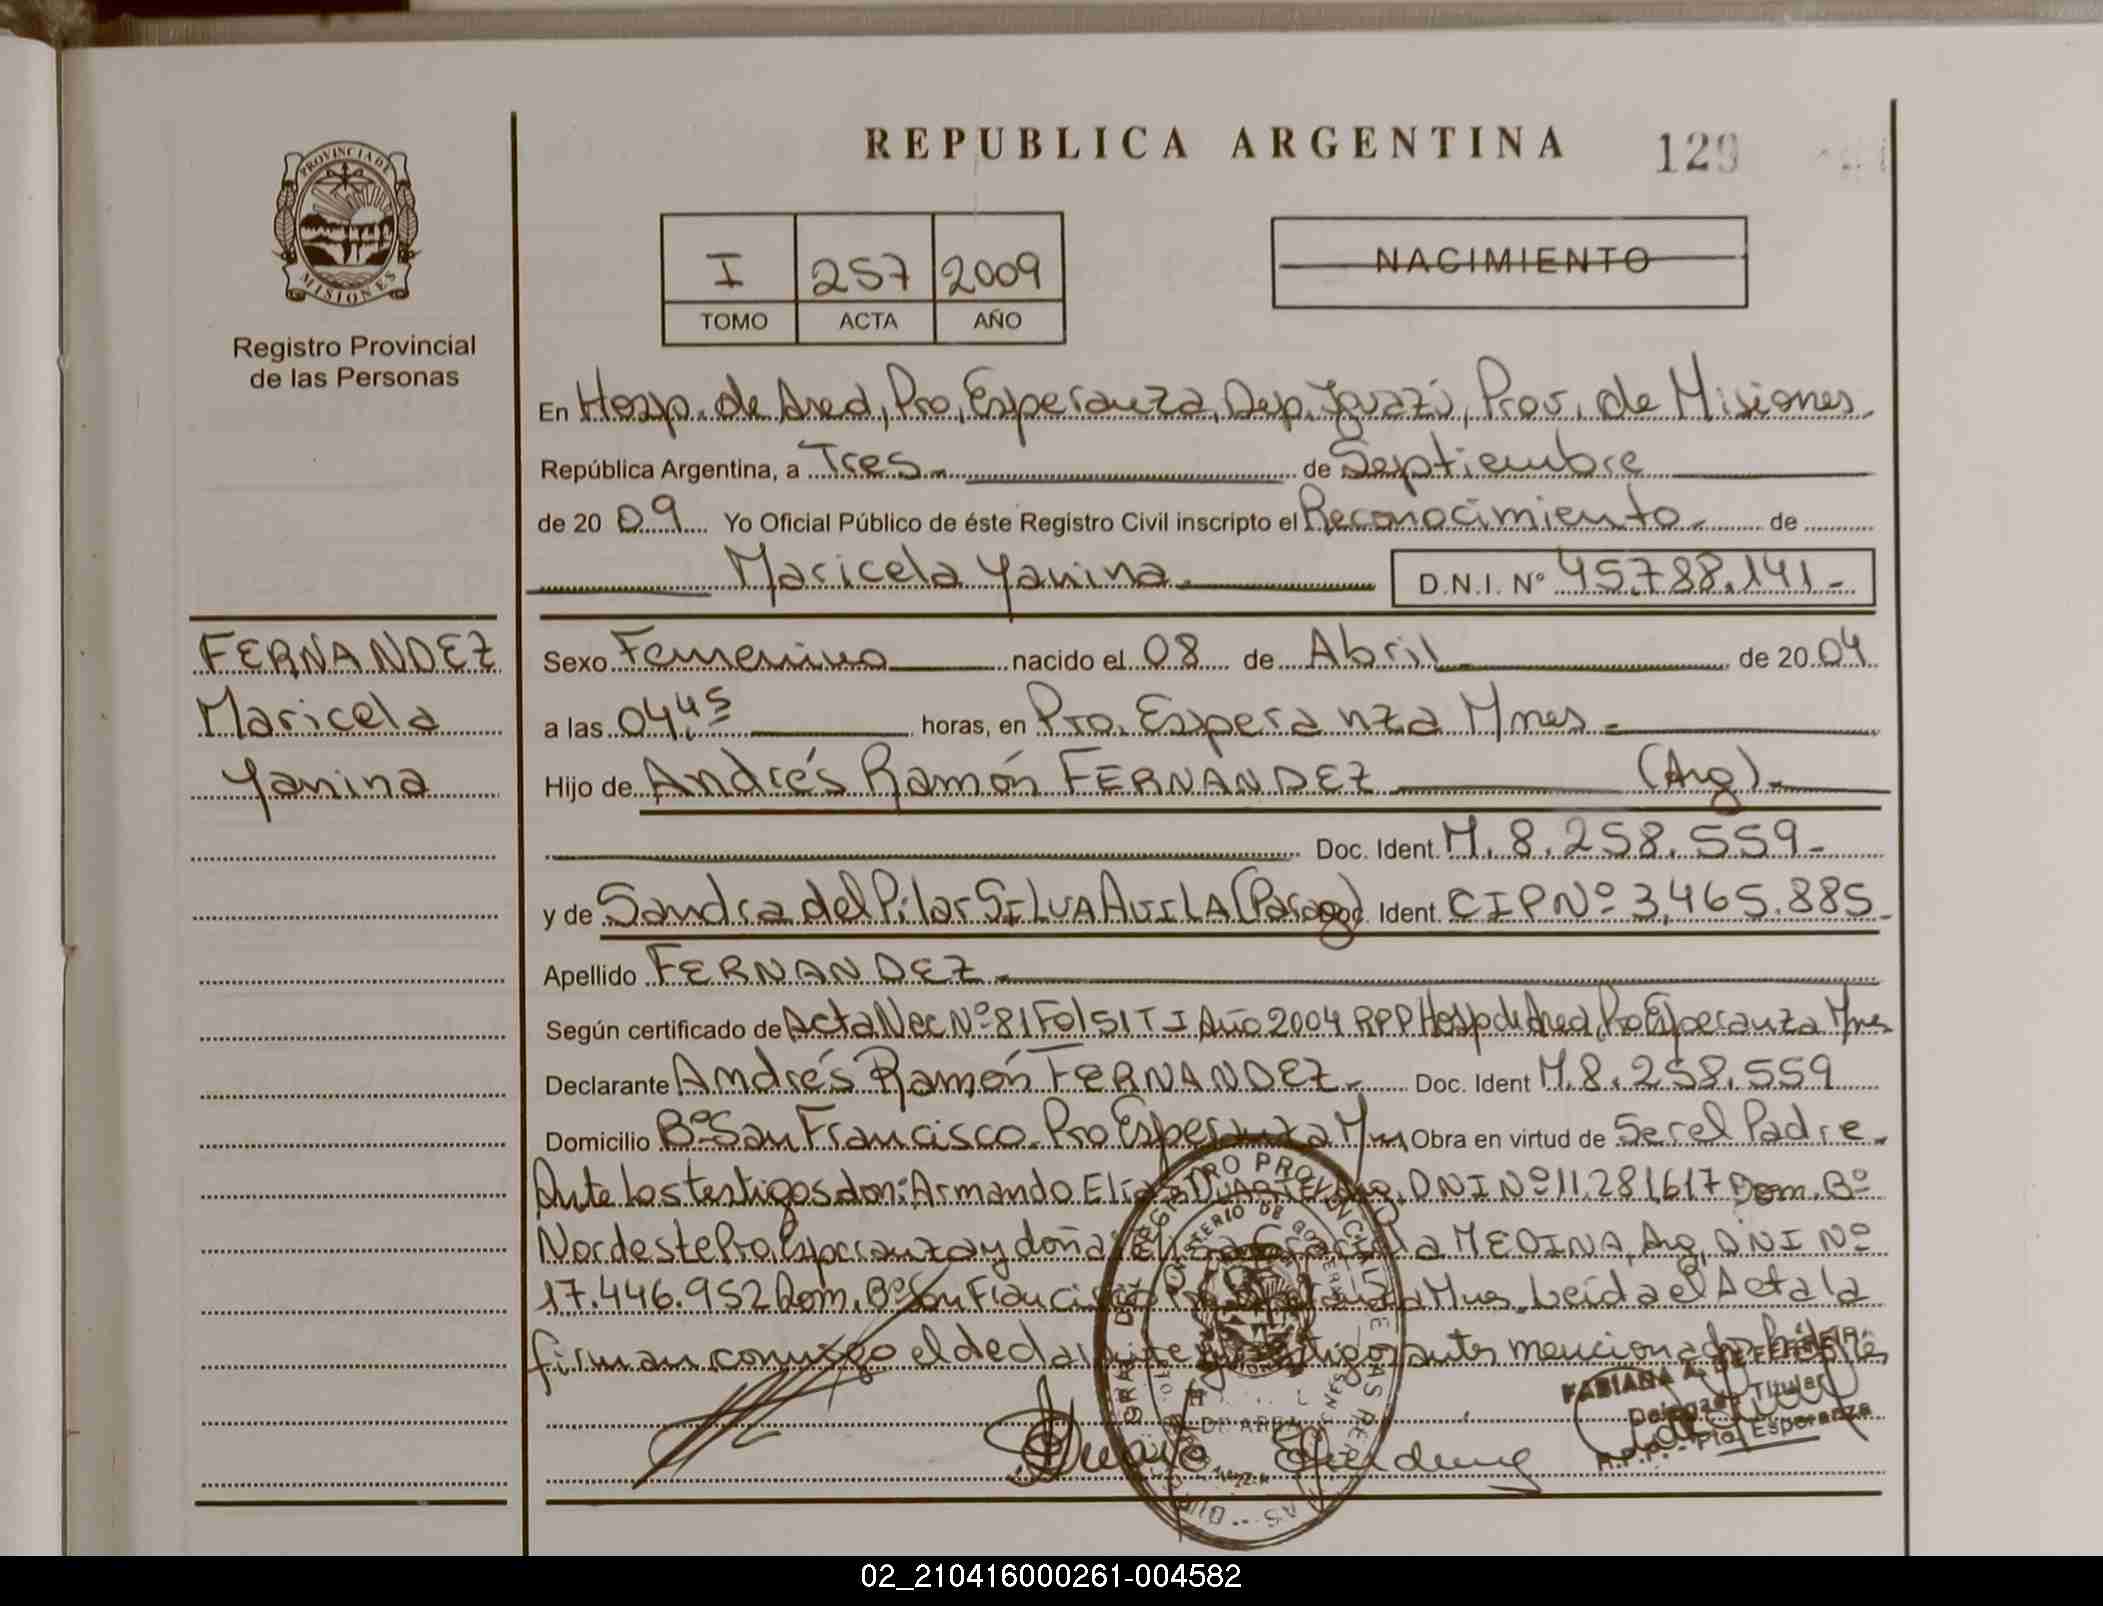 REPUBLICA ARGENTINA 129
PROVINCIA DE
MISIONES
Registro Provincial
de las Personas
I 257 2009
TOMO ACTA AÑO
NACIMIENTO
En Hosp. de Area, Pto, Esperanza, Dep. Iguazú, Prov. de Misiones.
República Argentina, a Tres.- de Septiembre
de 2009 Yo Oficial Público de éste Registro Civil inscripto el Reconocimiento.- de
Maricela Yanina.- D.N.I. Nº 45.788.141.-
FERNANDEZ
Maricela
Yanina
Sexo Femenino nacido el 08 de Abril de 2004
a las 04,45 horas, en Pto. Esperanza Mnes.-
Hijo de Andrés Ramón FERNANDEZ (Arg).-
Doc. Ident. M. 8.258.559.-
y de Sandra del Pilar SILVA AVILA (Parag) Doc. Ident. CIP Nº 3,465.885.-
Apellido FERNANDEZ.-
Según certificado de Acta Nac Nº 81 Fol 51 T I Año 2004 RPP Hosp de Area, Pto Esperanza Mnes
Declarante Andrés Ramón FERNANDEZ.- Doc. Ident M.8.258.559
Domicilio Bº San Francisco. Pto Esperanza Mnes, Obra en virtud de Ser el Padre.
Ante los testigos don: Armando DUARTE, Arg, DNI Nº 11.281.617 Dom. Bº
Nordeste Pto. Esperanza y doña MEDINA, Arg, DNI Nº
17.446.952 Dom. Bº San Francisco Pto Esperanza Mnes. Leída el Acta la
firman conmigo el declarante y testigos antes mencionados
FABIANA A. DE FERREIRA
Delegada Titular
R.P.P. - Pto. Esperanza
02_210416000261-004582